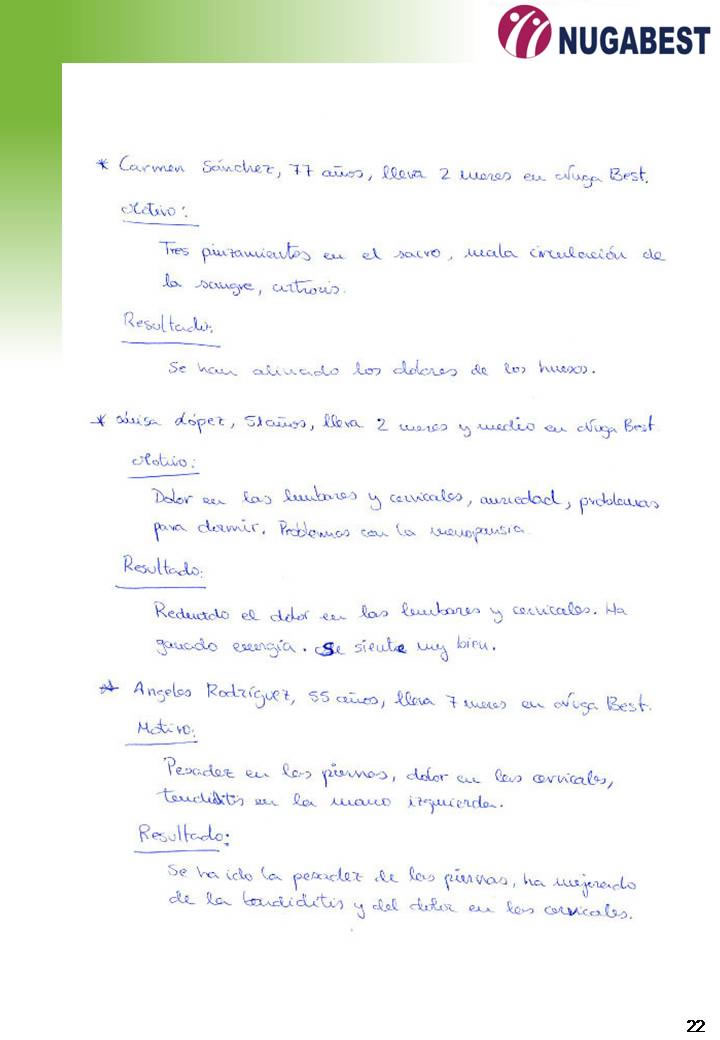 NUGABEST
* Carmen Sánchez, 77 años, lleva 2 meses en Nuga Best.
Motivo:
Tres pinzamientos en el sacro, mala circulación de
la sangre, artrosis.
Resultado:
Se han aliviado los dolores de los huesos.
* Luisa López, 51 años, lleva 2 meses y medio en Nuga Best
Motivo:
Dolor en las lumbares y cervicales, ansiedad, problemas
para dormir. Problemas con la menopausia
Resultado:
Reducido el dolor en las lumbares y cervicales. Ha
ganado energía. Se siente muy bien.
* Angeles Rodríguez, 55 años, lleva 7 meses en Nuga Best.
Motivo:
Pesadez en las piernas, dolor en las cervicales,
tendiditis en la mano izquierda.
Resultado:
Se ha ido la pesadez de las piernas, ha mejorado
de la tendiditis y del dolor en las cervicales.
22